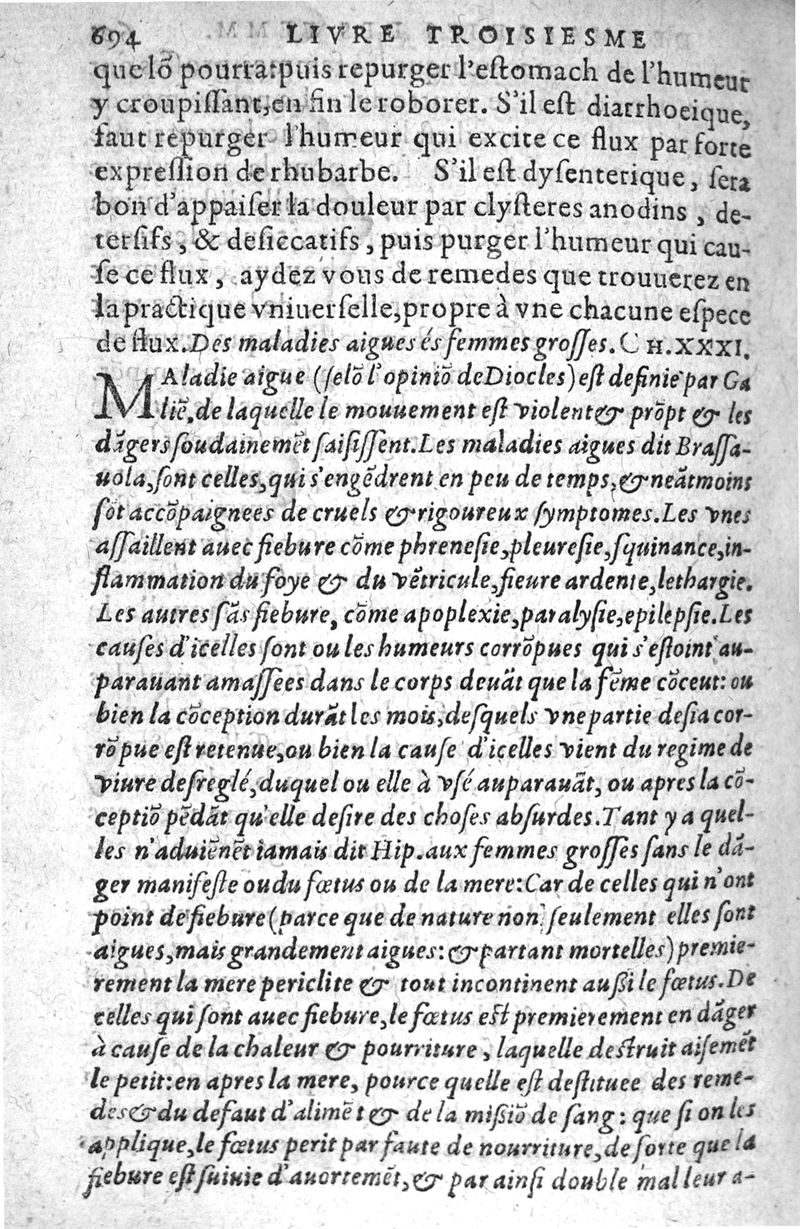 694 LIVRE TROISIESME
que lõ pourra: puis repurger l'estomach de l'humeur
y croupissant, en fin le roborer. S'il est diarrhoeique,
faut repurger l'humeur qui excite ce flux par forte
expression de rhubarbe. S'il est dysenterique, sera
bon d'appaiser la douleur par clysteres anodins, de-
tersifs, & desiccatifs, puis purger l'humeur qui cau-
se ce flux, aydez vous de remedes que trouuerez en
la practique vniuerselle, propre à vne chacune espece
de flux. Des maladies aigues és femmes grosses. CH. XXXI.
MAladie aigue (selõ l'opiniõ de Diocles) est definie par Ga
liẽ, de laquelle le mouuement est violent & prõpt & les
dãgers soudainemẽt saisissent. Les maladies aigues dit Brassa-
uola, sont celles, qui s'engẽdrent en peu de temps, & neãtmoins
sõt accõpaignees de cruels & rigoureux symptomes. Les vnes
assaillent auec fiebure cõme phrenesie, pleuresie, squinance, in-
flammation du foye & du vẽtricule, fieure ardente, lethargie.
Les autres sãs fiebure, cõme apoplexie, paralysie, epilepsie. Les
causes d'icelles sont ou les humeurs corrõpues qui s'estoint au-
parauant amassees dans le corps deuãt que la fẽme cõceut: ou
bien la cõception durãt les mois, desquels vne partie desia cor-
rõpue est retenue, ou bien la cause d'icelles vient du regime de
viure desreglé, duquel ou elle à vsé auparauãt, ou apres la cõ-
ceptiõ pẽdãt qu'elle desire des choses absurdes. Tant y a quel-
les n'aduiẽnẽt iamais dit Hip. aux femmes grosses sans le dã-
ger manifeste ou du fœtus ou de la mere: Car de celles qui n'ont
point de fiebure (parce que de nature non seulement elles sont
aigues, mais grandement aigues: & partant mortelles) premie-
rement la mere periclite & tout incontinent aussi le fœtus. De
celles qui sont auec fiebure, le fœtus est premierement en dãger
à cause de la chaleur & pourriture, laquelle destruit aisemẽt
le petit: en apres la mere, pource quelle est destituee des reme-
des & du defaut d'alimẽt & de la missiõ de sang: que si on les
applique, le fœtus perit par faute de nourriture, de sorte que la
fiebure est suiuie d'auortemẽt, & par ainsi double malleur a-